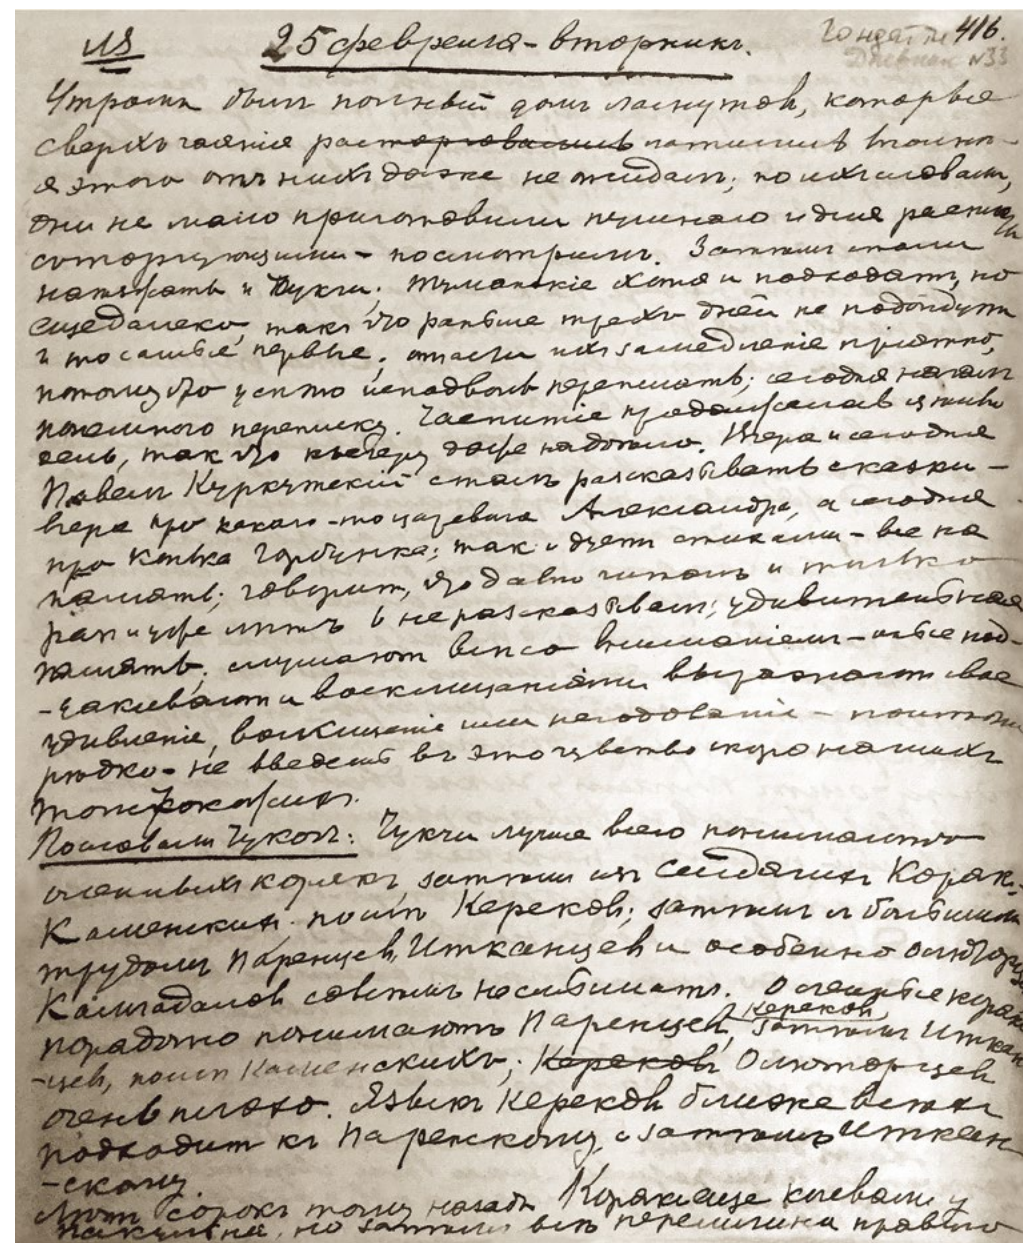 113 25 февраля - вторникъ. Гондатти 416.
Дневник №33
Утромъ былъ полный домъ ламутовъ, которые
сверхъ чаянія расторговались
я этого отъ нихъ даже не ожидалъ; по ихъ словамъ,
они не мало приготовили пушнаго и для
соторгующими - посмотримъ. Затѣмъ стали
наѣзжать и Чукчи; туманскіе хотя и подходятъ, но
еще далеко, такъ что раньше трехъ дней не подойдутъ
и то самые первые; отчасти ихъ замедленіе пріятно,
потому что успѣю исподволь переписать; сегодня началъ
понемногу переписку. Чаепитіе продолжалось цѣлый
день, такъ что къ вечеру даже надоѣло. Вчера и сегодня
Павелъ Куркутскій сталъ разсказывать сказки -
вчера про какого-то царевича Александра, а сегодня
про Конька Горбунка; такъ и дуетъ стихами - все на
память; говоритъ, что давно читалъ и только
разъ и уже лѣтъ 6 не разсказывалъ; удивительная
память; слушаютъ всѣ со вниманіемъ - иные под-
-дакиваютъ и восклицаніями выражаютъ свое
удивленіе, восхищеніе или негодованіе -
рѣдко - не введешь въ это чувство скоро нашихъ

По словамъ Чукочъ: Чукчи лучше всего понимаютъ
оленныхъ корякъ, затѣмъ изъ сидячихъ Корякъ -
Каменскихъ, послѣ Керековъ; затѣмъ съ большимъ
трудомъ Паренцевъ, Итканцевъ и особенно Олюторцевъ
Камчадаловъ совсѣмъ не понимаютъ. Оленные коряки
порядочно понимаютъ Паренцевъ, Керековъ, затѣмъ Иткан
-цев, послѣ Каменскихъ; Керековъ Олюторцевъ
очень плохо. Языкъ Керековъ ближе всѣхъ
подходитъ къ Паренскому, а затѣмъ Иткан
-скому.
Лѣтъ сорокъ тому назадъ Коряки еще кочевали у
но затѣмъ всѣ